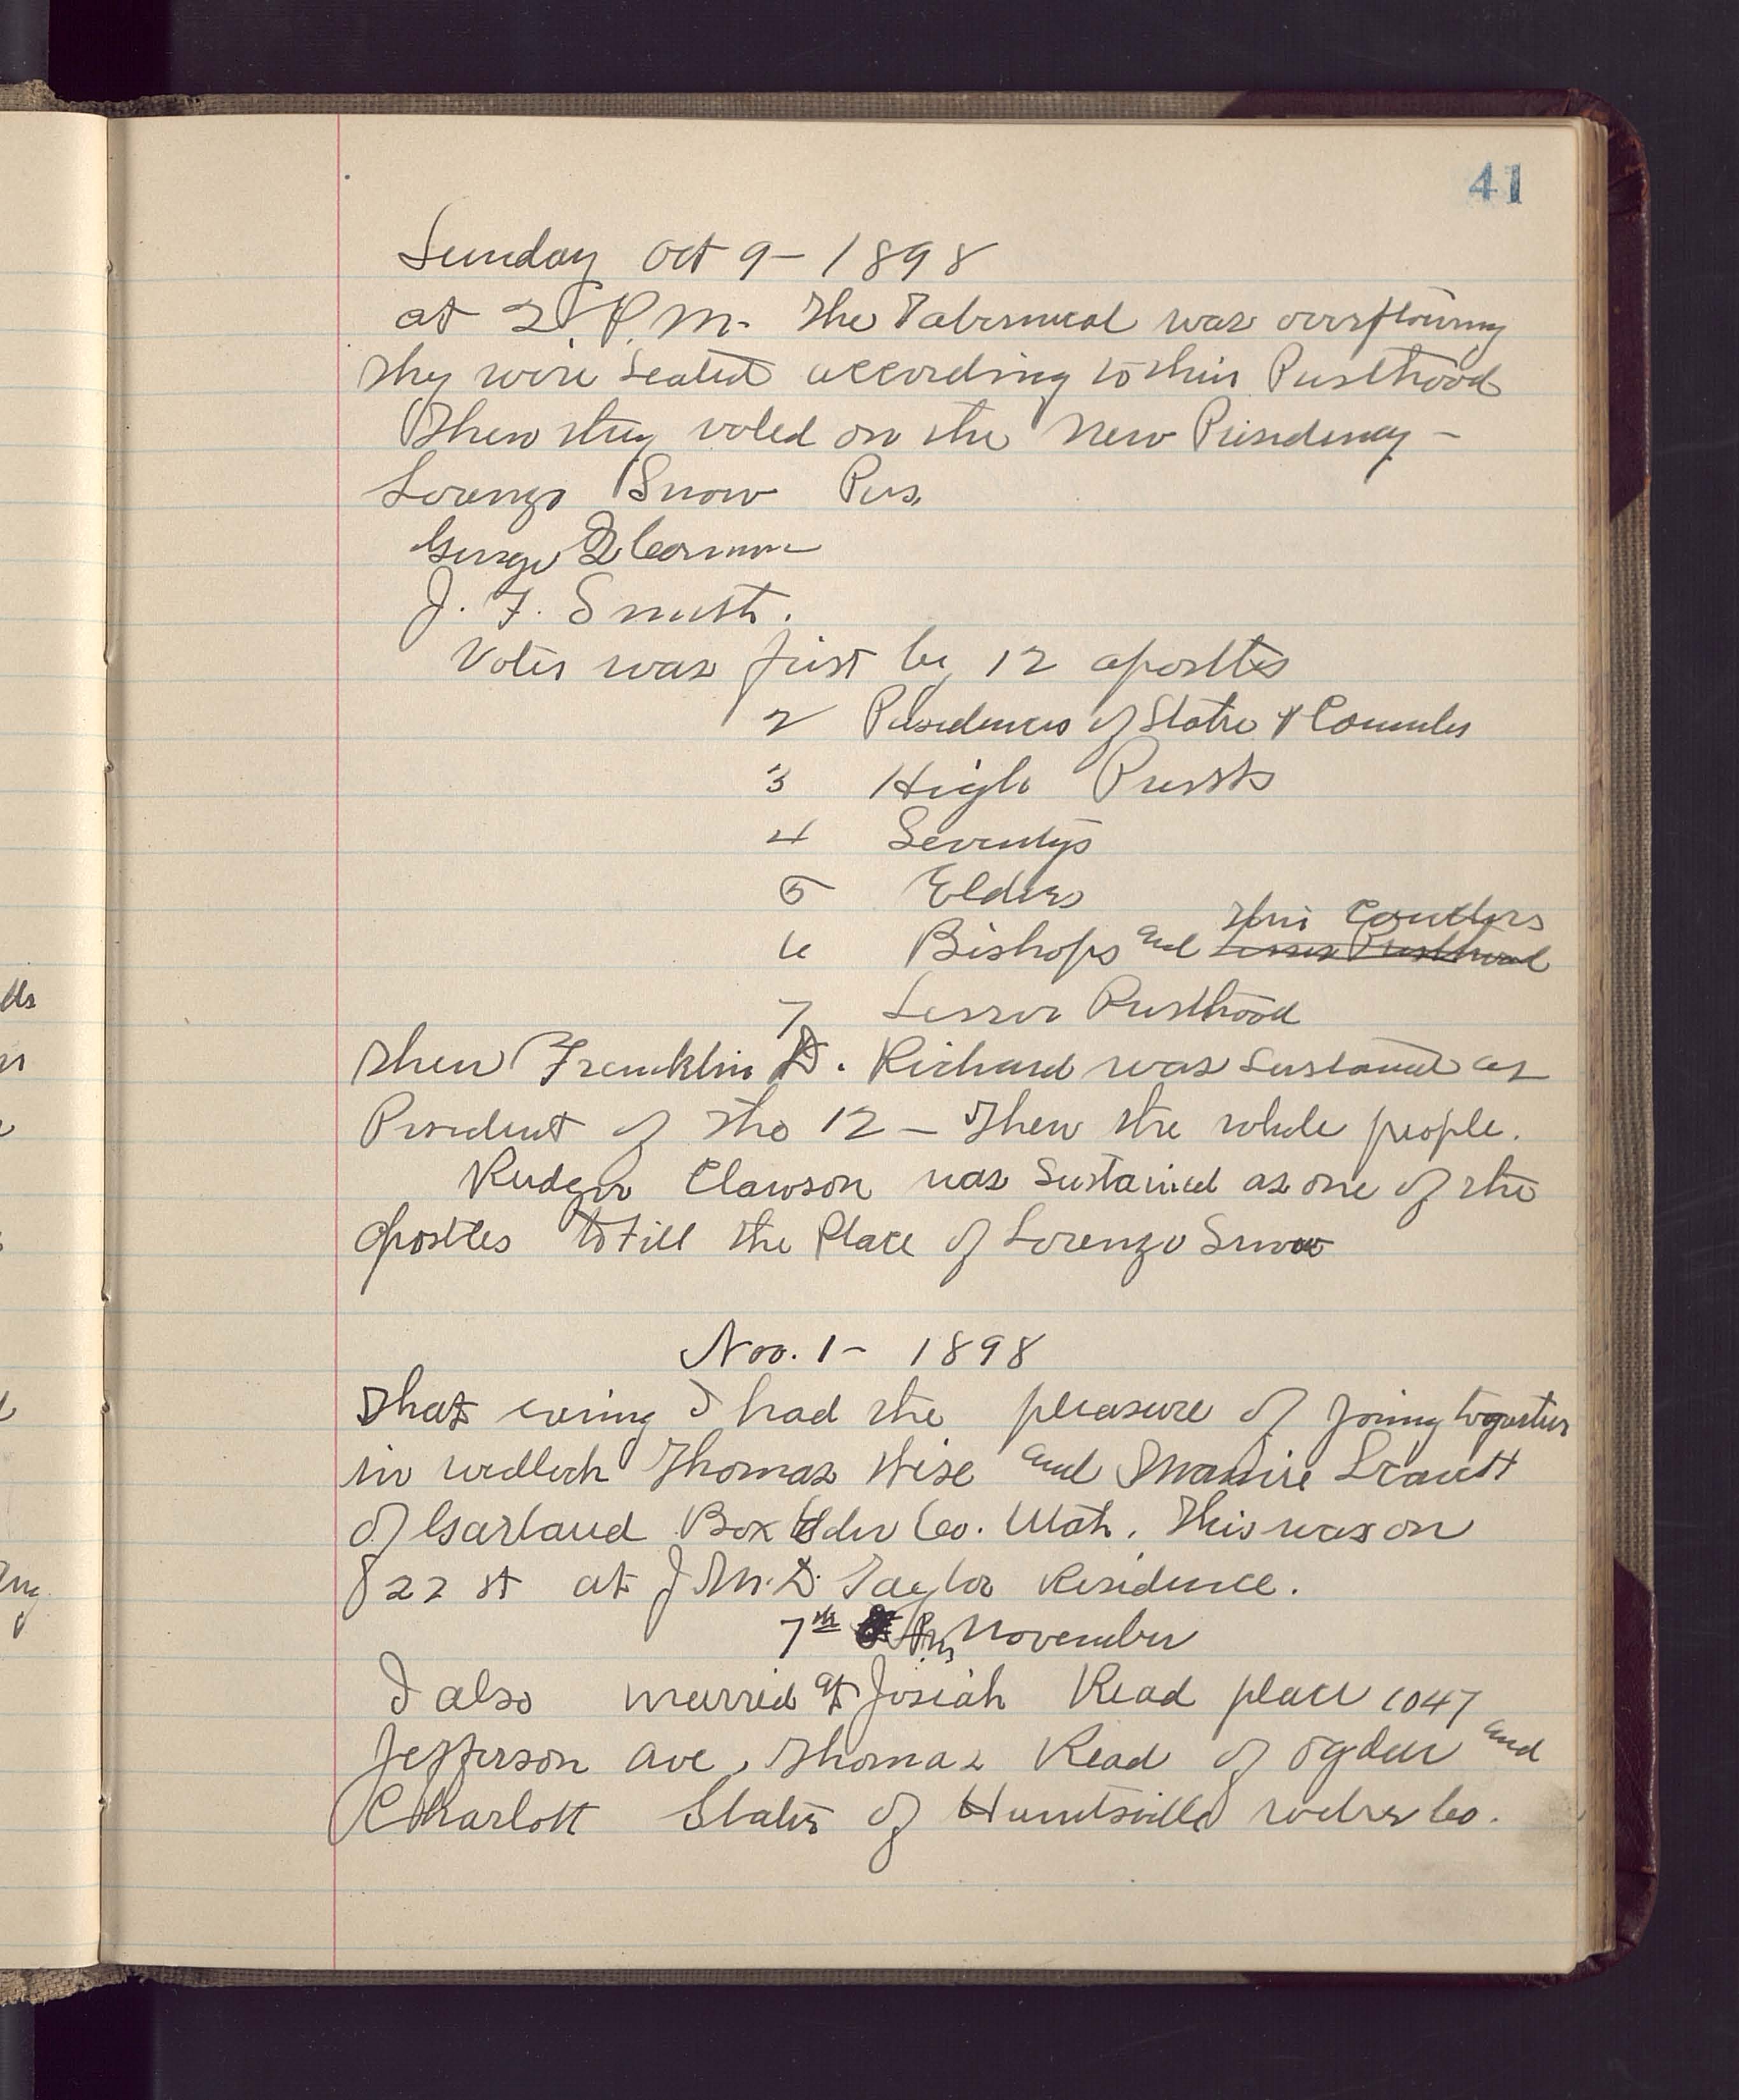 41
Sunday Oct 9 - 1898
at 2 P.M. The Tabernical was overflowing
they were seated according to their Priesthood
Then they voted on the New Presidency -
Lorenzo Snow Pres.
George Q Cannon
J. F. Smith.
Votes was first by 12 apostles
2 Presidences of Stake & Counsles
3 High Priests
4 Seventys
5 Elders
their Counslers
6 Bishops and Lesser Priesthood
7 Lesser Priesthood
Then Franklin D. Richard was sustained as
President of the 12 - Then the whole people.
Rudger Clawson was Sustained as one of the
Apostles to fill the Place of Lorenzo Snow
Nov. 1 - 1898
That evening I had the pleasure of joining together
in wedlock Thomas Wise and
of Garland Box Elder Co. Utah. This was on
22 st at J M. D. Taylor Residence.
7th November
I also married at Josiah Read place 1047
Jefferson Ave, Thomas Read of Ogden and
Charlott Slater of Huntsville Weber Co.